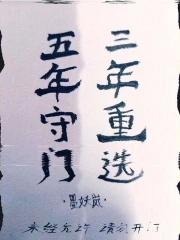 三年重选
五年守门
墨妖
未经允许 请勿开门